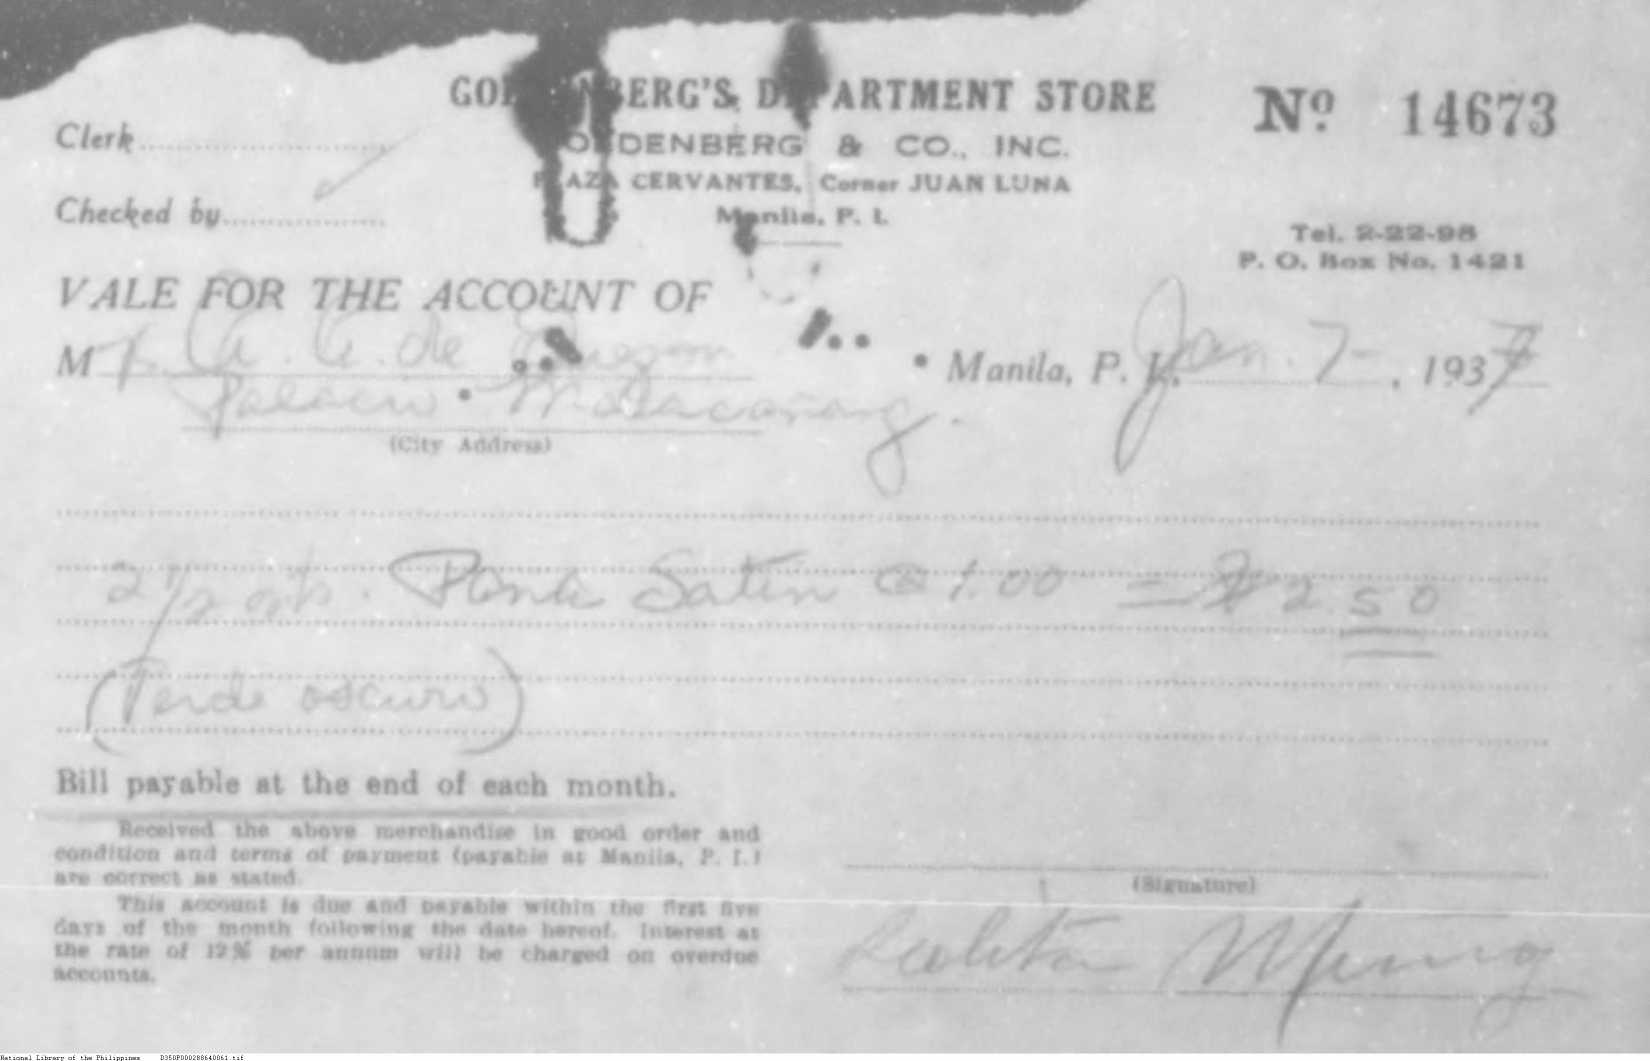 GOLDENBERG'S DEPARTMENT STORE
Nº 14673
Clerk
GOLDENBERG & CO., INC.
PLAZA CERVANTES, Corner JUAN LUNA
Checked by
Manila, P. I.
Tel. 2-22-98
P. O. Box No. 1421
VALE FOR THE ACCOUNT OF
Mr. A. A. de Quezon
Manila, P. I. Jan. 7, 1937
Palacio Malacañang.
(City Address)
2 1/2 yds. Satin @ 1.00 = ₱ 2.50
(Verde oscuro)
Bill payable at the end of each month.
Received the above merchandise in good order and
condition and terms of payment (payable at Manila, P. I.)
are correct as stated.
(Signature)
This account is due and payable within the first five
days of the month following the date hereof. Interest at
the rate of 12% per annum will be charged on overdue
accounts.
National Library of the Philippines D350P000288640061.tif